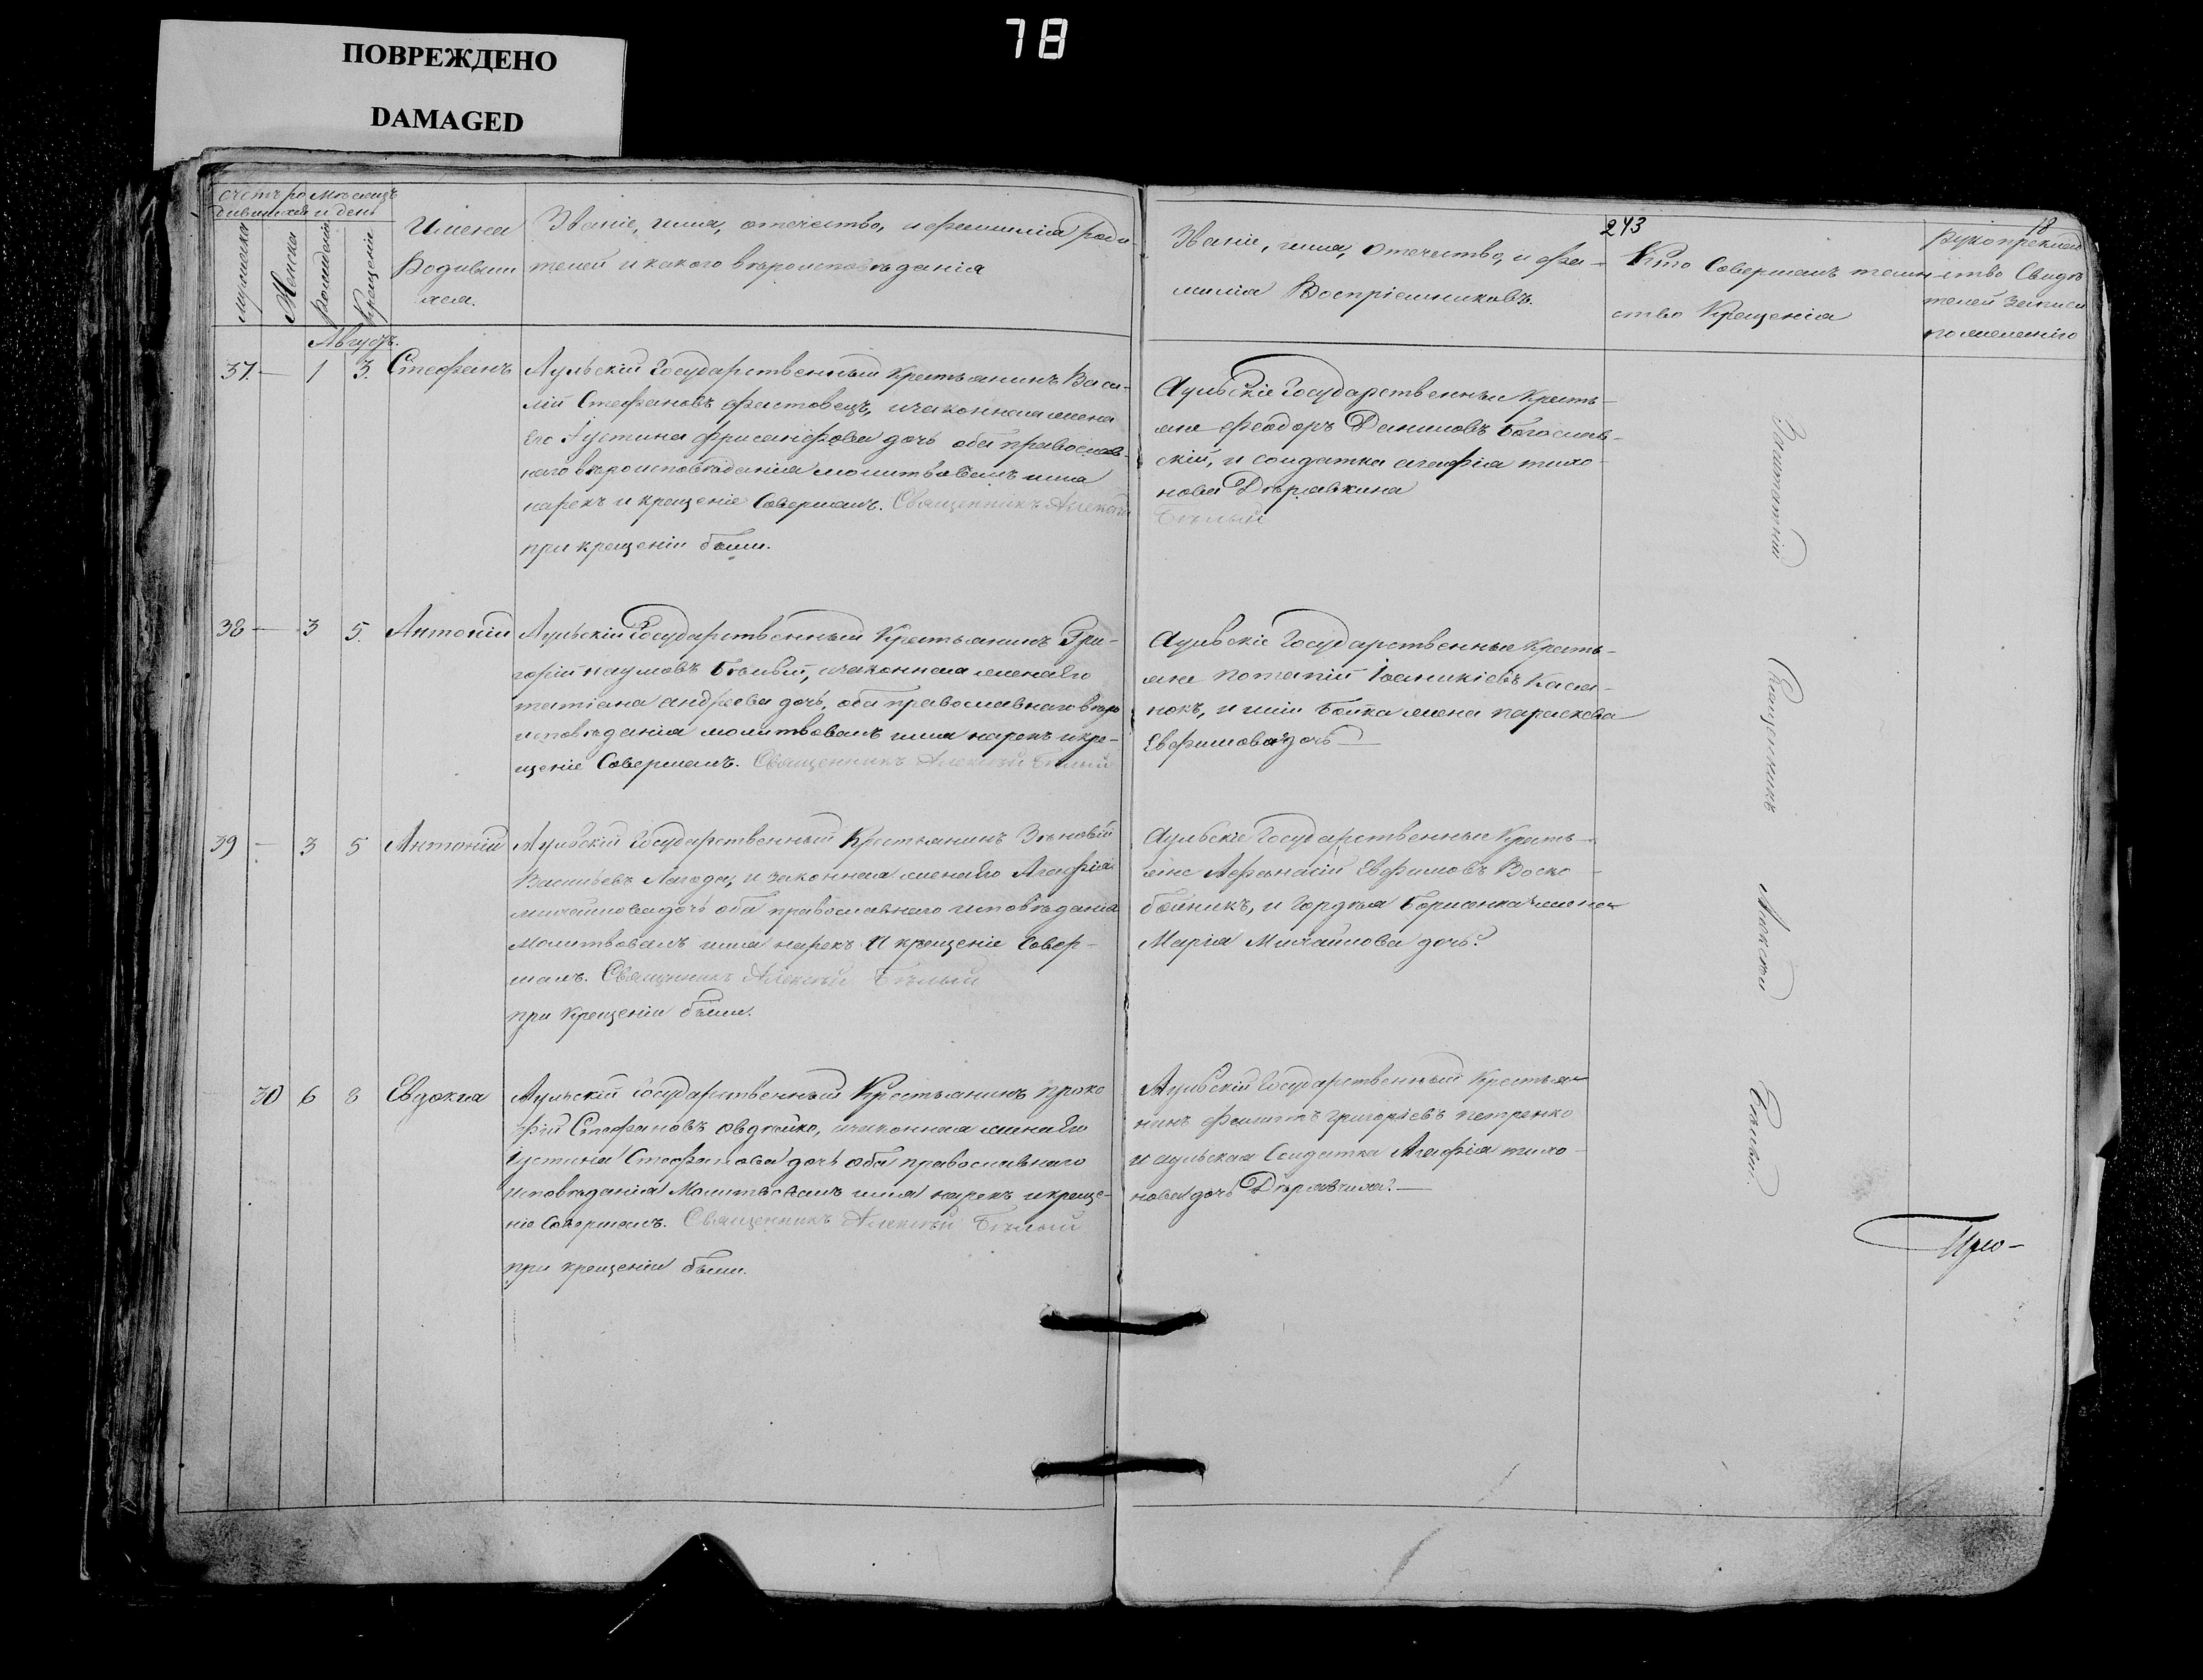 78
ПОВРЕЖДЕНО
DAMAGED
243
18
Счетъ ро Мѣсяцъ
дившихся и день
мужеска
Женска
рожденія
Крещенія
Имена
Родивши
хся.
Званіе, имя, отечество, и фамилія роди-
телей и какого вѣроисповѣданія
Званіе, имя, отечество, и фа-
милія Воспріемниковъ.
Кто Совершалъ таин-
ство Крещенія
Рукоприклад
ство Свидѣ
телей записи
по желанію
Августъ.
37. — 1 3. Стефанъ
Аульскій Государственный Крестьянинъ Васи-
лій Стефановъ Фастовецъ, и законная жена
Его Іустина Фрисанфова дочь оба православ-
наго вѣроисповѣданія молитвовалъ имя
нарекъ и крещеніе Совершалъ. Священникъ Алексій
Бѣлый
при крещеніи были.
Аульскіе Государственные Кресть-
яне Феодоръ Даниловъ Богослав-
скій, и солдатка агафія тихо-
нова Дѣржавкина
38 — 3 5. Антоній
Аульскій Государственный Крестьянинъ Гри-
горій Наумовъ Бѣлый, и законная жена Его
татіана андреева дочь, оба православнаго вѣро
исповѣданія молитвовалъ имя нарекъ и кре-
щеніе Совершалъ. Священникъ Алексѣй Бѣлый
Аульскіе Государственные Кресть-
яне Потапій Іоаникіевъ Касья-
нокъ, и Бойка жена параскева
Евфимова дочь —
39 — 3 5 Антоній
Аульскій Государственный Крестьянинъ Зѣновій
Васильевъ Лагода, и законная жена Его Агафія
михайлова дочь оба православнаго исповѣданія
Молитвовалъ имя нарекъ и крещеніе Совер-
шалъ. Священникъ Алексѣй Бѣлый
при Крещеніи были.
Аульскіе Государственные Кресть-
яне Афанасій Евфимовъ Воско-
бойникъ, и Гордѣя жена
Марія Михайлова дочь.
30 6 8 Евдокія
Аульскій Государственный Крестьянинъ проко
фій Стефановъ Овдѣйко, и законная жена Его
Іустина Стефанова дочь оба православнаго
исповѣданія Молитвовалъ имя нарекъ и креще-
ніе Совершалъ. Священникъ Алексѣй Бѣлый
при крещеніи были.
Аульскій Государственный Крестья-
нинъ Филиппъ Григоріевъ петренко
и аульская Солдатка Агафія тихо-
нова дочь —
Священникъ Алексѣй Бѣлый.
При-